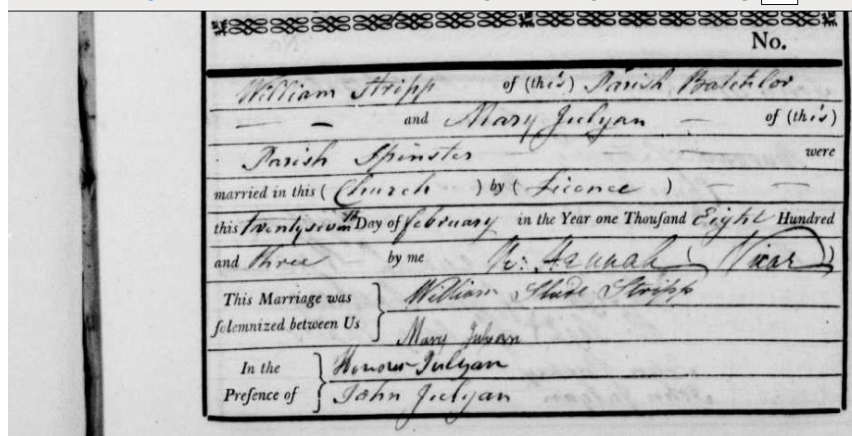 No.
William Stripp of (this) Parish Batchelor
and Mary Julyan of (this)
Parish Spinster were
married in this (Church) by (Licence)
this twentyseventh Day of february in the Year one Thousand Eight Hundred
and three by me Hannah (Vicar)
This Marriage was solemnized between Us
William Slade Stripp
Mary Julyan
In the Presence of
Honour Julyan
John Julyan